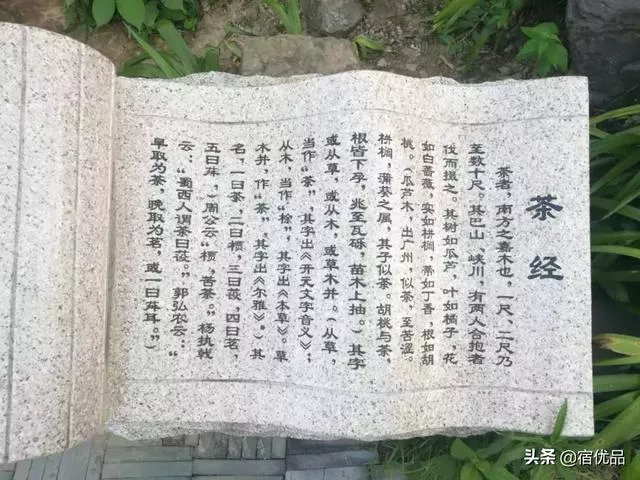 茶经
茶者，南方之嘉木也，一尺、二尺乃
至数十尺。其巴山、峡川，有两人合抱者
伐而掇之。其树如瓜芦，叶如橘子，花
如白蔷薇，实如栟榈，蒂如丁香，根如胡
桃。（瓜芦木，出广州，似茶，至苦涩。
栟榈，蒲葵之属，其子似茶。胡桃与茶，
根皆下孕，兆至瓦砾，苗木上抽。）其字
或从草，或从木，或草木并。（从草，
当作“茶”，其字出《开元文字音义》；
从木，当作“梌”，其字出《本草》。草
木并，作“荼”，其字出《尔雅》。）其
名，一曰茶，二曰槚，三曰蔎，四曰茗，
五曰荈。（周公云“槚，苦荼。”杨执戟
云：“蜀西人谓茶曰蔎。”郭弘农云：“
早取为茶，晚取为茗，或一曰荈耳。”）
头条 @宿优品